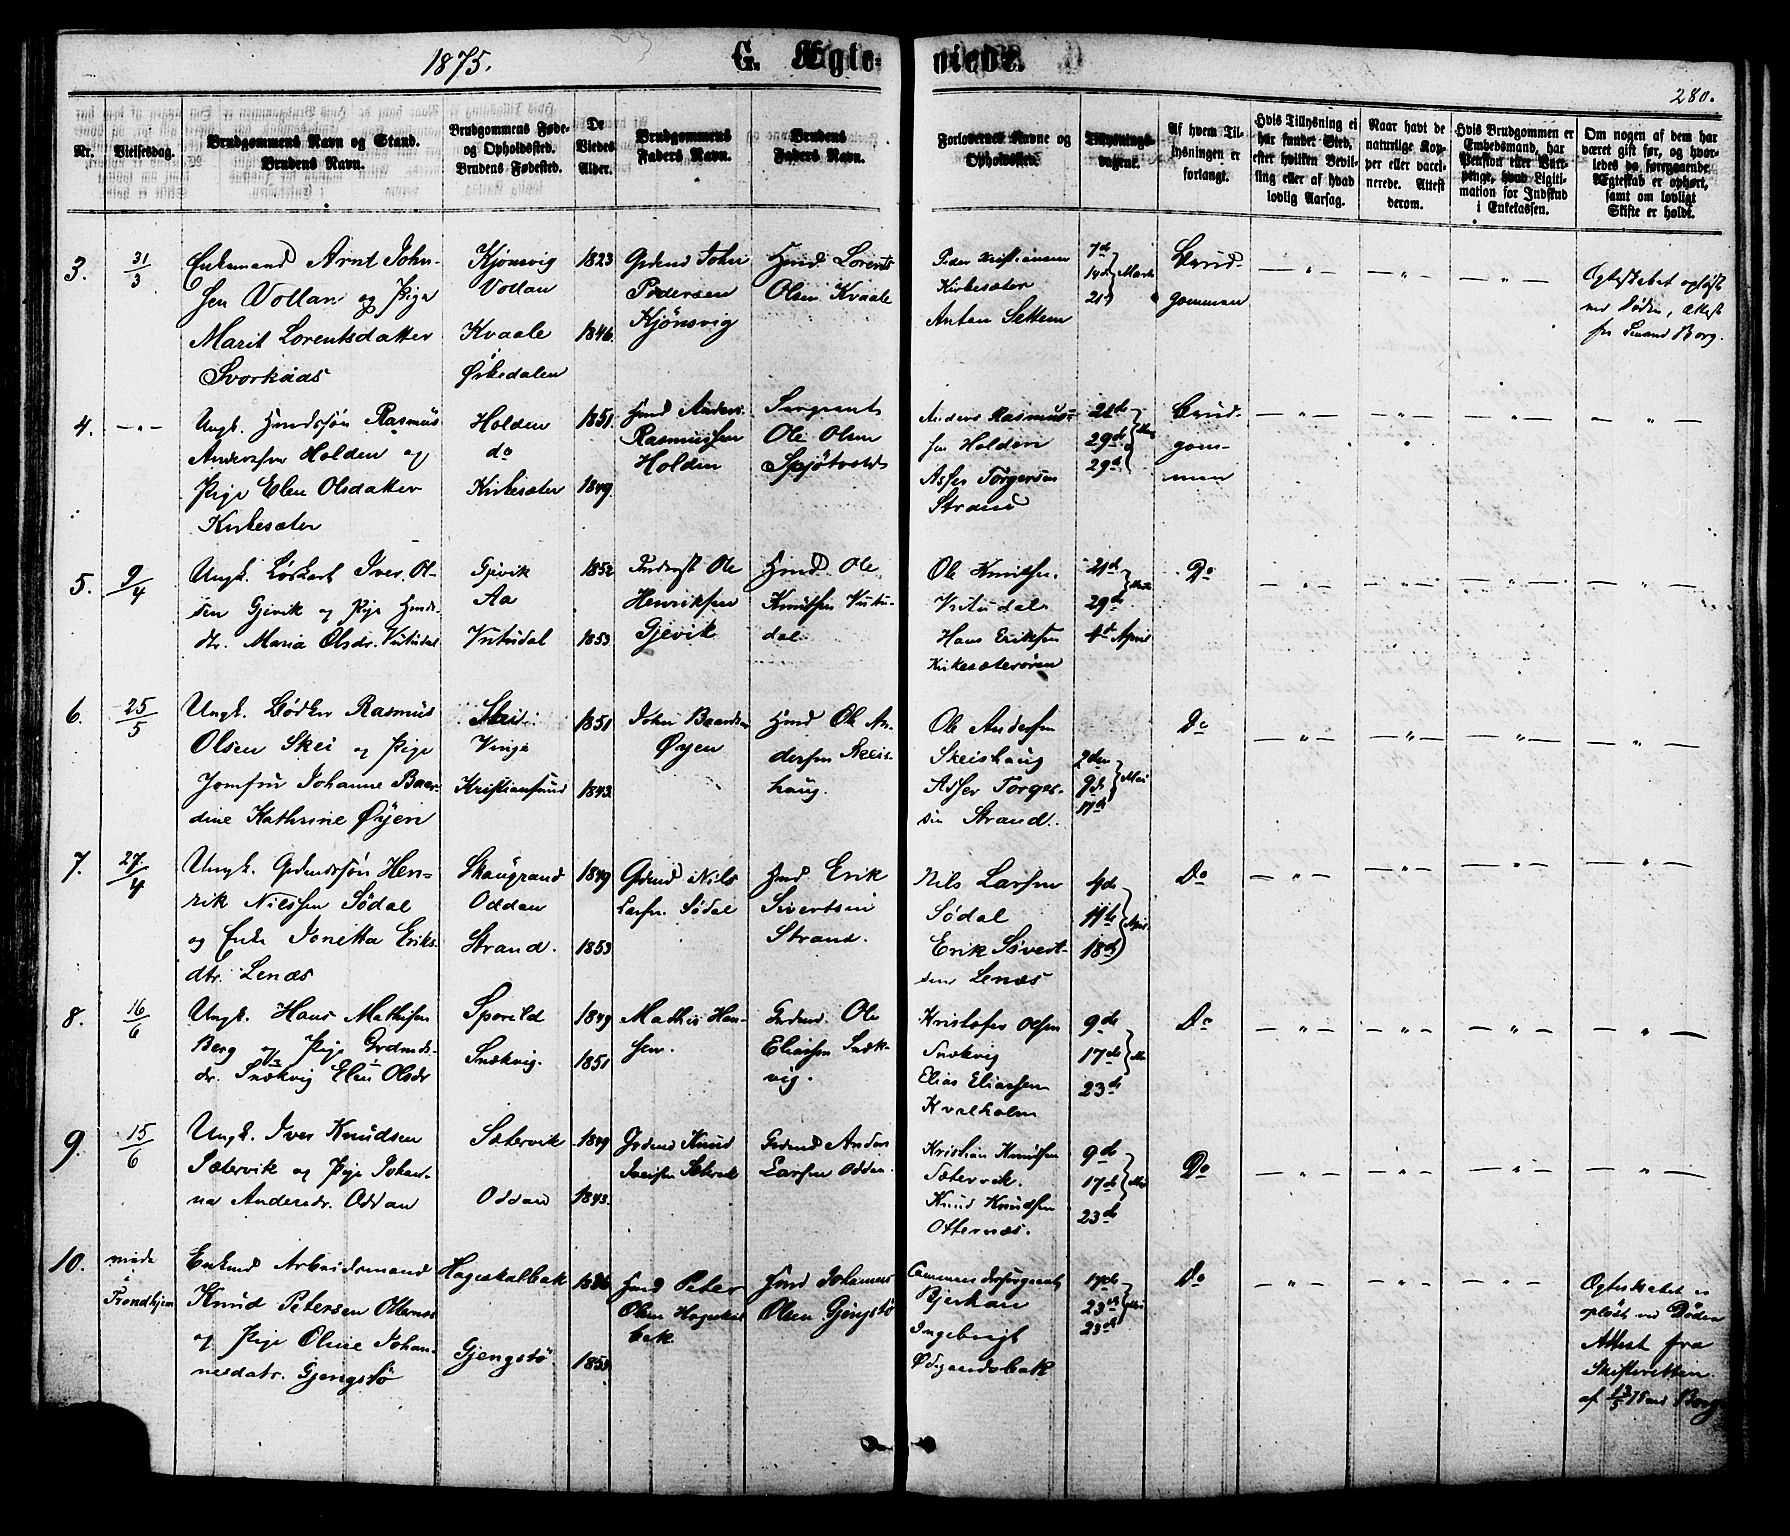 1875.
G. Ægte-
viede.
280.
Nr.
Vielsesdag.
Brudgommens Navn og Stand.
Brudens Navn.
Brudgommens Føde-
og Opholdssted.
Brudens Fødested.
De
Viedes
Alder.
Brudgommens
Faders Navn.
Brudens
Faders Navn.
Forlovernes Navne og
Opholdssted.
Tillysnings-
dagene.
Af hvem Til-
lysningen er
forlangt.
Hvis Tillysning ei
har fundet Sted,
efter hvilken Bevil-
ling eller af hvad
lovlig Aarsag.
Naar havt de
naturlige Kop-
per eller vacci-
nerede. Attest
derom.
Hvis Brudgommen er
Embedsmand, har
Pension eller Vart-
penge, hvad Ligiti-
mation for Indskud
i Enkekassen.
Om nogen af dem har
været gift før, og hvor-
ledes da foregaaende
Ægteskab er ophørt,
samt om lovligt
Skifte er holdt.
3.
31/3
Enkemand Arnt John-
sen Vollan og Pige
Marit Lorentsdatter
Svorkaas
Kjønsvig
Vollan
Kvaale
Ørkedalen
1823
1846.
Grdmd John
Pedersen
Kjønsvig
Hmd. Lorents
Olsen Kvaale
Peder Kristiansen
Kirkesæter
Anton Settem
7de
14de
21d
Marts
Brud-
gommen
— " —
— " —
— " —
Ægteskabet opløst
ved Døden, attest
fra Lensmd Borg.
4.
— " —
Ungk. Hmdssøn Rasmus
Andersen Holden og
Pige Elen Olsdatter
Kirkesæter
Holden
do
Kirkesæter
1851
1849.
Hmd Anders
Rasmussen
Holden
Sergeant
Ole Olsen
Spjøtvold
Anders Rasmus-
sen Holden
Asser Torgersen
Strand
21de
29de
29d
Brud-
gom-
men
— " —
— " —
— " —
— " —
5.
9/4
Ungk. Løskarl Iver Ol-
sen Gjevik og Pige Hmds-
dtr. Maria Olsdr. Vutudal
Gjevik
Aa
Vutudal
1852
1853
Inderst Ole
Henriksen
Gjevik
Hmd Ole
Knutsen Vutu-
dal.
Ole Knutsen
Vutudal
Hans Eriksen
Kirkesæterøren
21de
29de
4d April
Do
— " —
— " —
— " —
— " —
6.
25/5
Ungk. Bødker Rasmus
Olsen Skei og Pige
Jomfru Johanne Baar-
dine Kathrine Øyen
Skei
Vinje
Kristiansund
1851
1843.
John Baardsen
Øyen
Hmd Ole An-
dersen Skeis-
haug.
Ole Andersen
Skeishaug
Asser Torger-
sen Strand.
2den
9d
17de
Mai
Do
— " —
— " —
— " —
— " —
7.
27/4
Ungk. Grdmdssøn Hen-
rik Nilssen Södal
og Enke Jonetta Eriks-
dtr. Lenæs
Skaugrand
Oddan
Strand.
1849
1853
Grdmd Nils
Larsen Södal
Hmd Erik
Sivertsen
Strand.
Nils Larsen
Södal
Erik Sivert-
sen Lenæs
4de
11te
18d
April
Do
— " —
— " —
— " —
— " —
8.
16/6
Ungk. Hans Mathisen
Berg og Pige Grdmds-
dr. Snækvig Elen Olsdr
Sporild
Snækvig.
1849
1851
Mathis Han-
sen.
Grdmd. Ole
Eliassen Snæk-
vig.
Kristofer Olsen
Snækvig
Elias Eliassen
Kvalholm
9de
17de
23de
Mai
Do
— " —
— " —
— " —
— " —
9.
15/6
Ungk. Iver Knudsen
Sætervik og Pige Johan-
na Andersdr. Oddan
Sætervik
Oddan
1849
1843.
Grdmd Knud
Iversen Sætervik
Grdmd Anders
Larsen Oddan
Kristian Knudsen
Sætervik.
Knud Knudsen
Otternæs.
9de
17de
23de
Mai
Do
— " —
— " —
— " —
— " —
10.
viede
i
Trondhjem
Enkemd Arbeidsmand
Knud Petersen Otternæs
og Pige Oline Johan-
nesdatr. Gjengstø
Hageskalbak
Gjengstø
1853
Hmd Peter
Olsen Hageskal-
bak
Hmd Johannes
Olsen Gjengstø
Commandersergeant
Bjerkan
Ingebrigt
Ødegaardsbak
17de
23de
23de
Mai
Do
— " —
— " —
— " —
Ægteskabet er
opløst ved Døden
Attest fra
Skifteretten
af 13/5 75 ved Borg